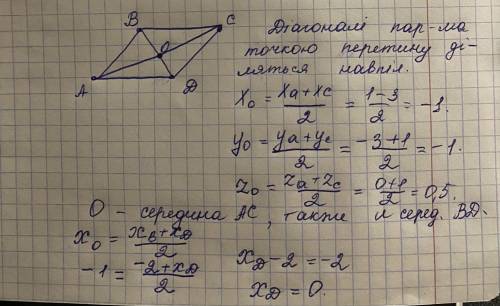 B
C
O
A
D
Діагоналі пар-ма
точкою перетину ді-
ляться навпіл.
X₀ = (Xa+xc)/2 = (1-3)/2 = -1.
y₀ = (ya+yc)/2 = (-3+1)/2 = -1.
Z₀ = (Za+Zc)/2 = (0+1)/2 = 0,5.
O - середина AC, також и серед. BD.
x₀ = (xB+xD)/2
-1 = (-2+xD)/2
xD-2 = -2
xD = 0.